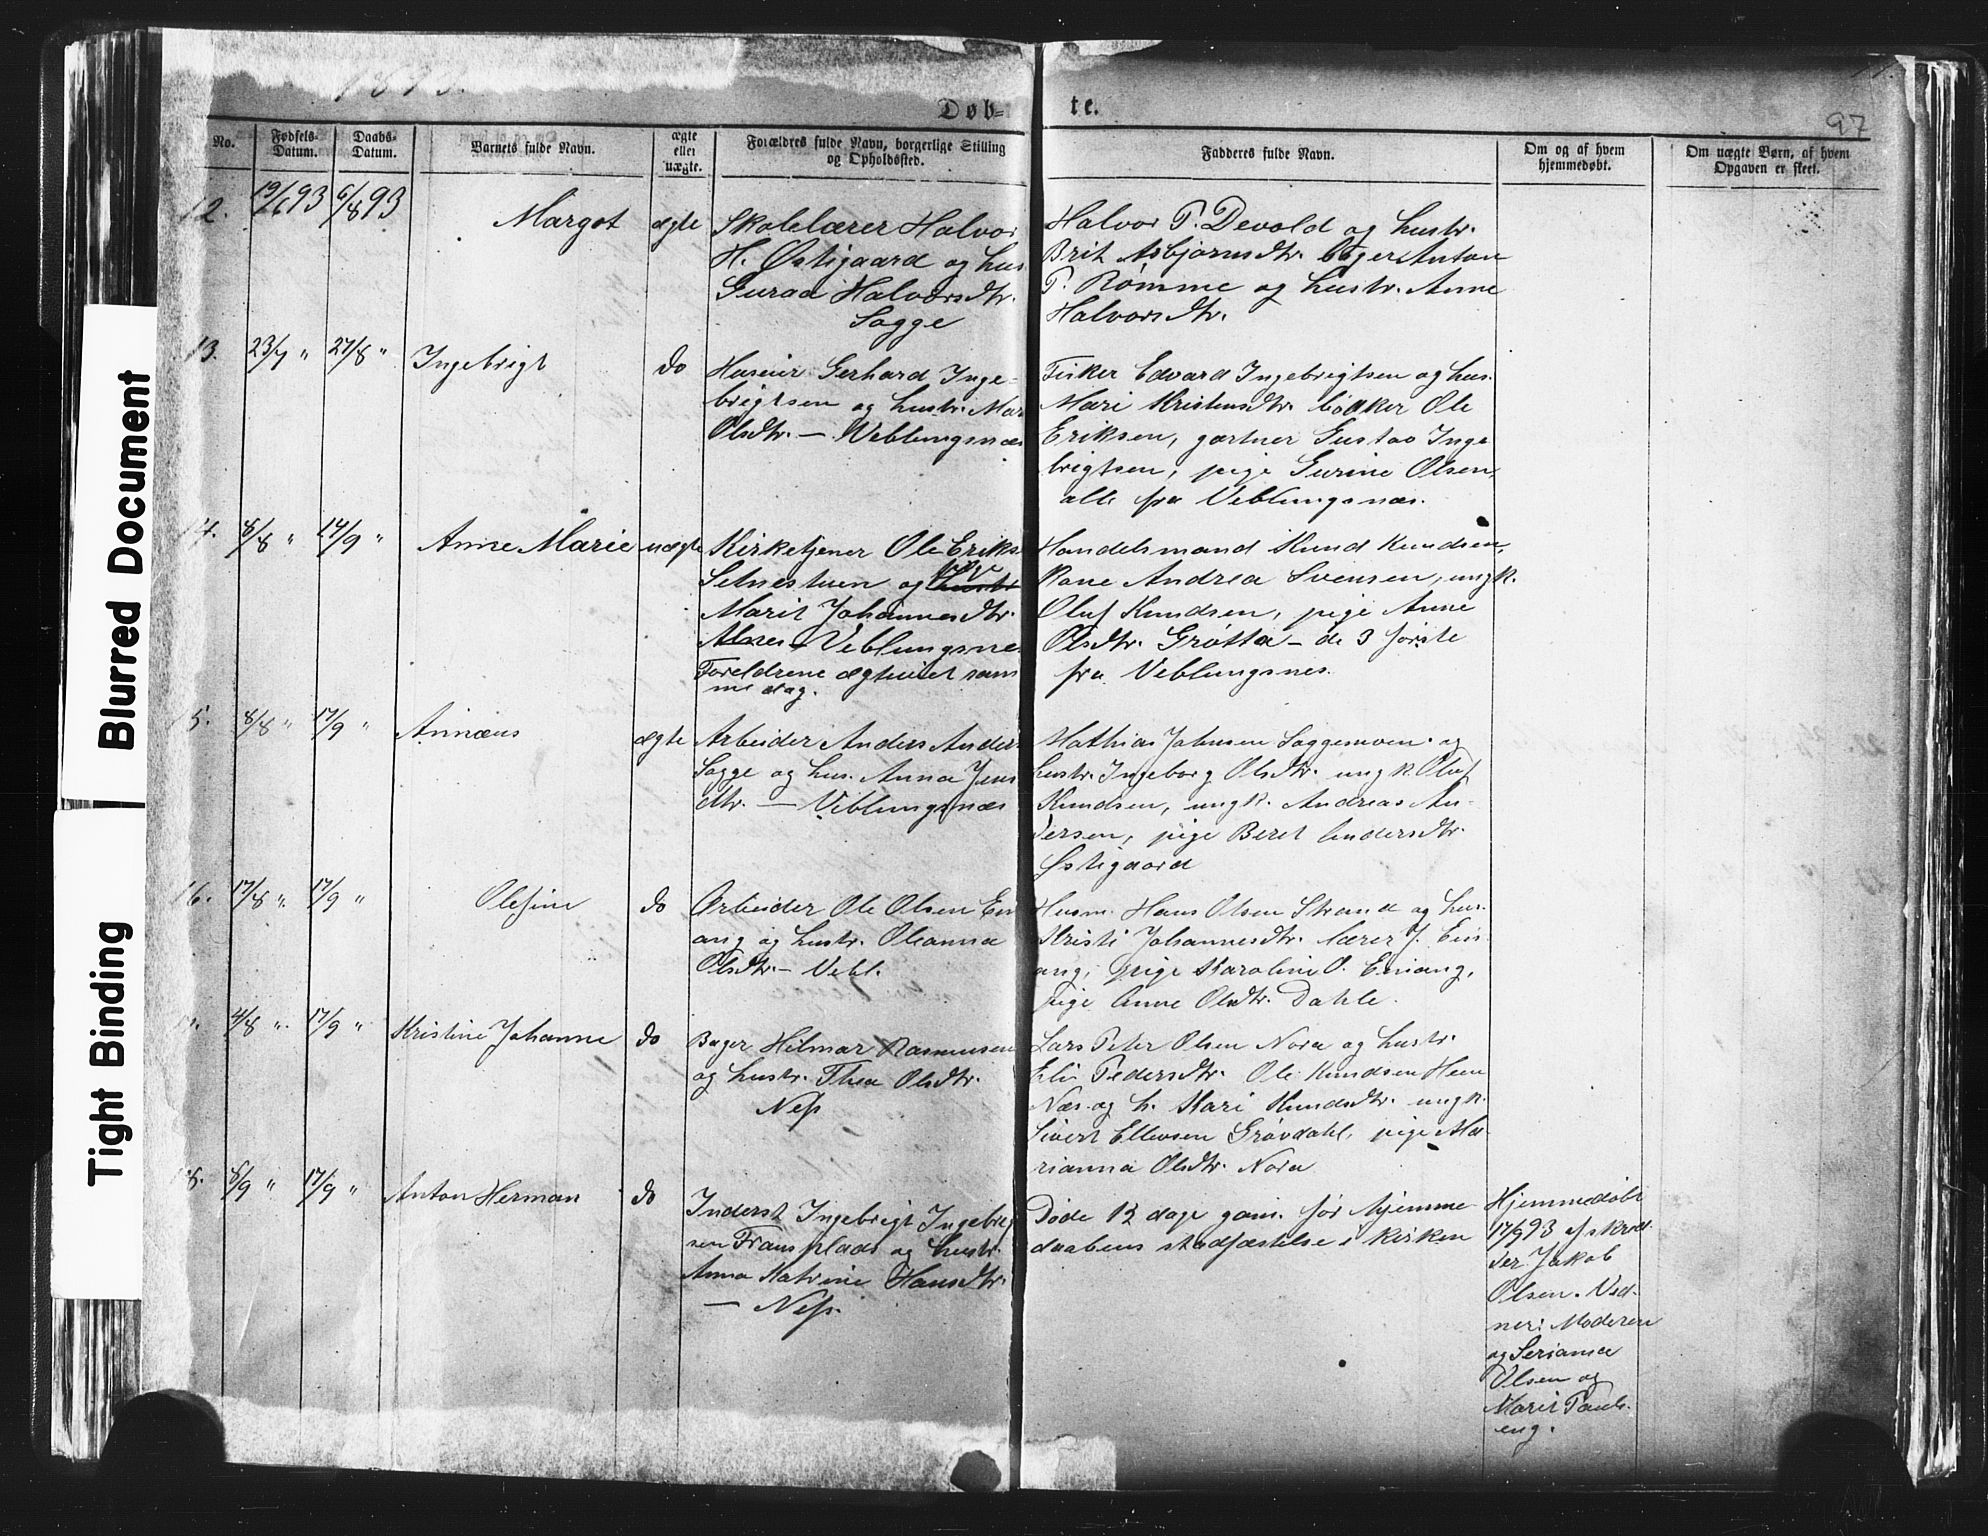 1893.
Døb-
te.
97
No.
Fødsels-
Datum.
Daabs-
Datum.
Barnets fulde Navn.
ægte
eller
uægte.
Forældres fulde Navn, borgerlige Stilling
og Opholdssted.
Fadderes fulde Navn.
Om og af hvem
hjemmedøbt.
Om uægte Børn, af hvem
Opgaven er skeet.
12. 19/6 93 6/8 93 Margot ægte
Skolelærer Halvor
H. Østigaard og hus
Guraa Halvorsdtr.
Sogge
Halvor P. Devold og hustr.
Brit Asbjørnsdtr. Anton
P. Rømme og hustr. Anne
Halvorsdtr.
13. 23/7 " 27/8 " Ingebrigt do
Huseier Gerhard Inge-
brigtsen og hustr. Mar
Olsdtr. — Veblungsnæs
Fisker Edvard Ingebrigtsen og hus.
Mari Kristensdtr. bødker Ole
Eriksen, gartner Gustav Inge
brigtsen, pige Gurine Olsen,
alle fra Veblungsnæs.
14. 8/8 " 14/9 " Anne Marie uægte
Kirketjener Ole Eriks
Setnestuen og hustr pige
Marit Johannesdtr.
Veblungsne
Foreldrene ægteviet sam
me dag.
Handelsmand Knud Knudsen,
Kone Andrea Svensen, ungk.
Oluf Knudsen, pige Anne
Olsdtr. Grøtta – de 3 første
fra Veblungsnes.
15. 8/8 " 17/9 " Annæus ægte
Arbeider Anders Anders
Sogge og hus. Anna Jens
dtr. — Veblungsnæs
Mathias Johnsen Soggemoen og
hustr. Ingeborg Olsdtr. ungk. Oluf
Knudsen, ungk. Andreas An-
dersen, pige Beret Andersdtr.
Østigaard
16. 17/8 " 17/9 " Olefine do
Arbeider Ole Olsen En
ang og hustr. Oleanna
Olsdtr. – Vebl.
Husm. Hans Olsen Strand og hus.
Kristi Johannesdtr. lærer J. Ein
ang, pige Karoline O. Einang,
pige Anne Olsdtr. Dahle.
4/8 " 17/9 " Kristine Johanne do
Bager Hilmar Rasmussen
og hustr. Thea Olsdtr.
Næss
Lars Peter Olsen Nora og hustr.
Eli Pedersdtr. Ole Knudsen Hem
Næs og h. Kari Knudsdtr. ungk.
Sivert Ellevsen Grøvdahl, pige Ma-
rianna Olsdtr. Nora
18. 8/9 " 17/9 " Anton Herman do
Inderst Ingebrigt Ingebrig
sen Fransplads og hustr.
Anna Katrine Hansdtr.
— Ness.
Døde 12 dage gam. før hjemme
daabens stadfæstelse i kirken
Hjemmedøbt
17/9 93 af skræd
der Jakob
Olsen. Vid-
ner: Moderen
og Serianna
Olsen og
Marit Pauls
eng.
Blurred Document
Tight Binding